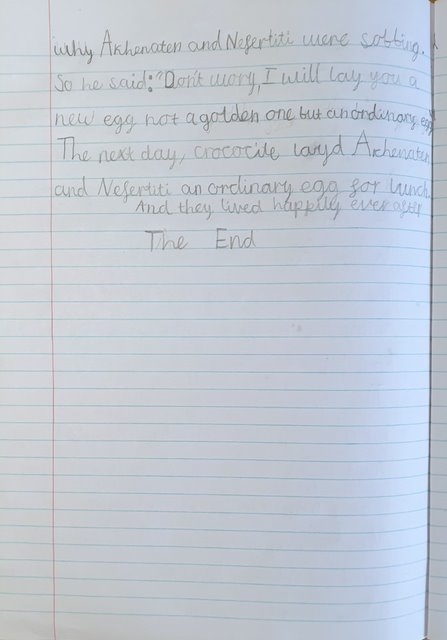 why Akhenaten and Nefertiti were sobbing.
So he said: "Don't worry, I will lay you a
new egg not a golden one but an ordinary egg
The next day, crococile layd Akhenaten
and Nefertiti an ordinary egg for lunch.
And they lived happily ever after
The End